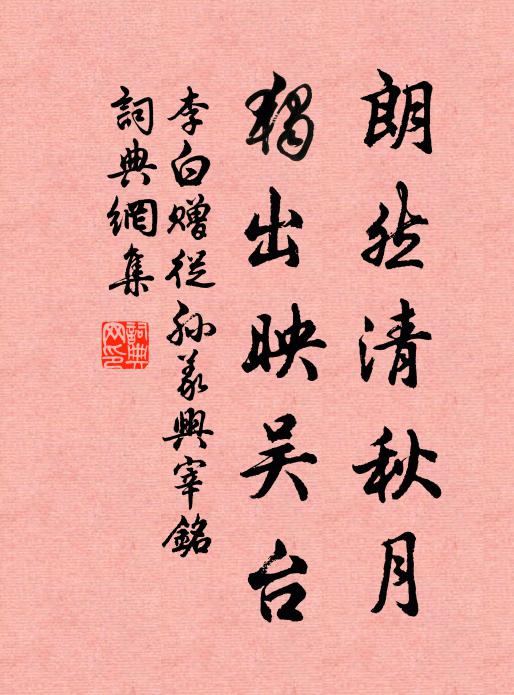 朗然清秋月
獨出映吴台
李白赠從孙義興宰銘
詞典網集
詞典
网印